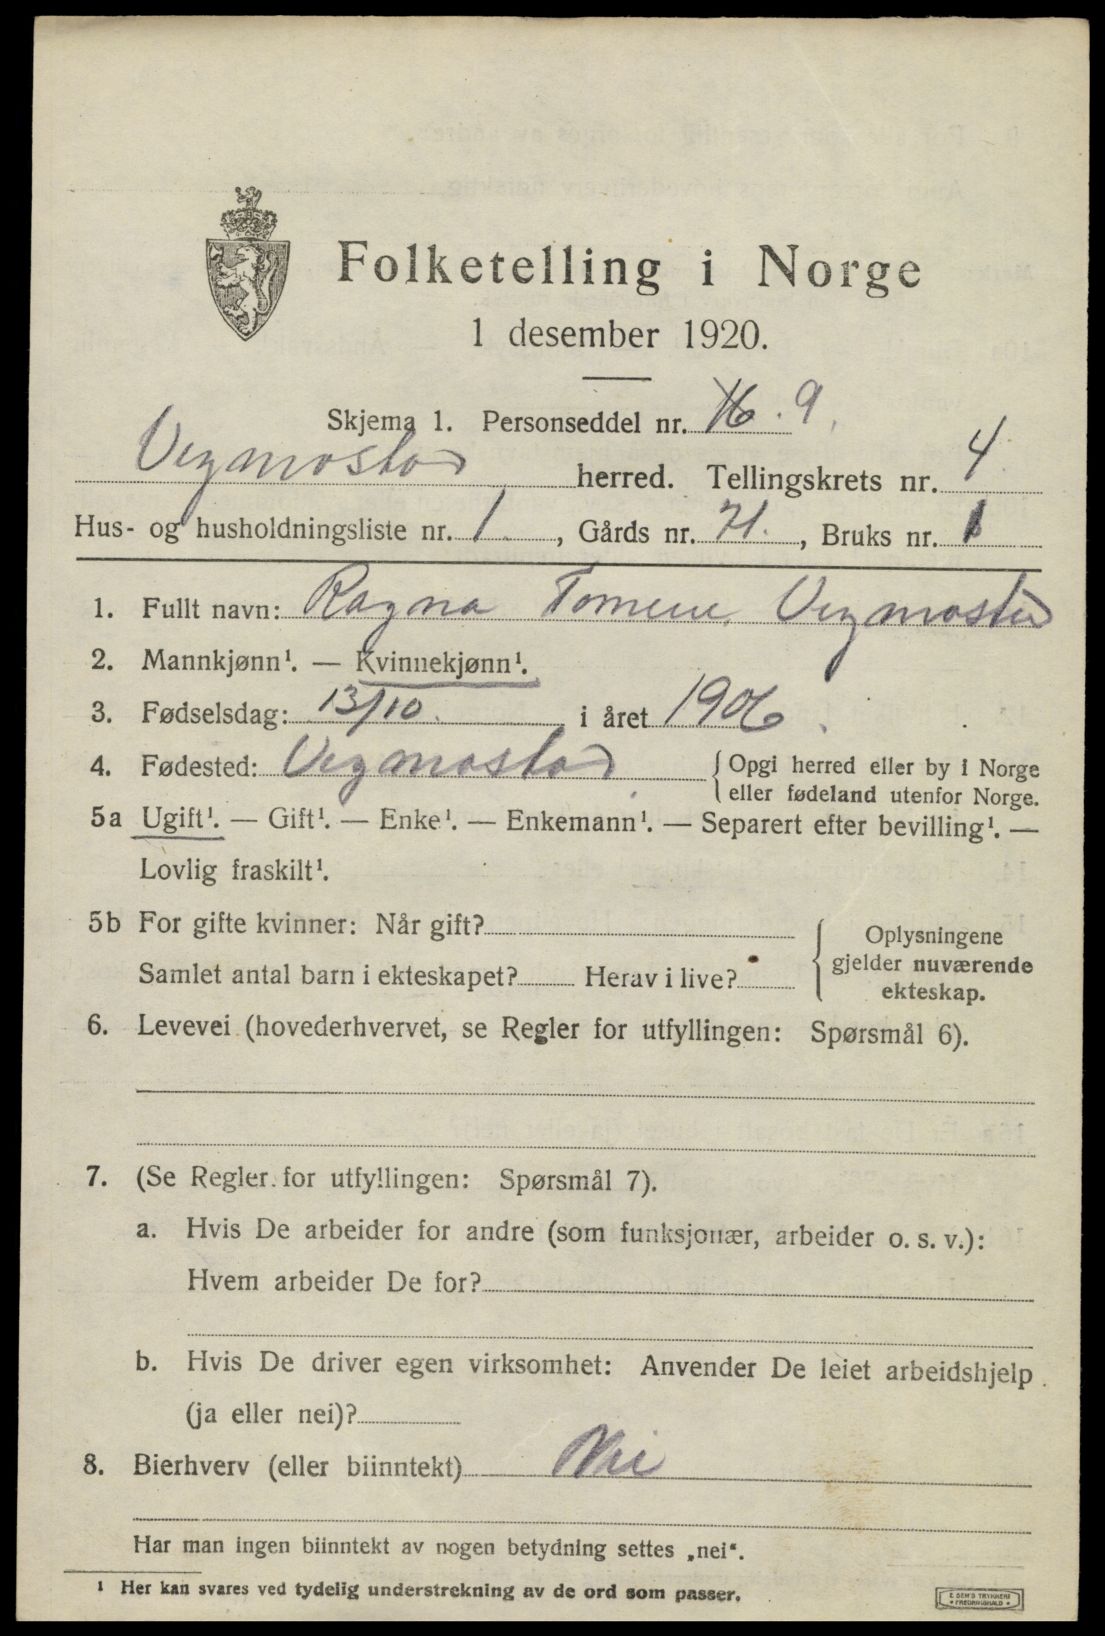 Folketelling i Norge
1 desember 1920.
Skjema 1. Personseddel nr. 9.
Vegmostad herred. Tellingskrets nr. 4
Hus- og husholdningsliste nr. 1, Gårds nr. 71., Bruks nr. 1
1. Fullt navn: Ragna Tomene Vegmostad
2. Mannkjønn¹. — Kvinnekjønn¹.
3. Fødselsdag: 13/10. i året 1906.
4. Fødested: Vegmostad { Opgi herred eller by i Norge
eller fødeland utenfor Norge.
5a Ugift¹. — Gift¹. — Enke¹. — Enkemann¹. — Separert efter bevilling¹. —
Lovlig fraskilt¹.
5b For gifte kvinner: Når gift?
Samlet antal barn i ekteskapet? Herav i live?
{ Oplysningene
gjelder nuværende
ekteskap.
6. Levevei (hovederhvervet, se Regler for utfyllingen: Spørsmål 6).
7. (Se Regler for utfyllingen: Spørsmål 7).
a. Hvis De arbeider for andre (som funksjonær, arbeider o. s. v.):
Hvem arbeider De for?
b. Hvis De driver egen virksomhet: Anvender De leiet arbeidshjelp
(ja eller nei)?
8. Bierhverv (eller biinntekt) Nei
Har man ingen biinntekt av nogen betydning settes „nei“.
¹ Her kan svares ved tydelig understrekning av de ord som passer.
E. SEM'S TRYKKERI
• FREDRIKSHALD •